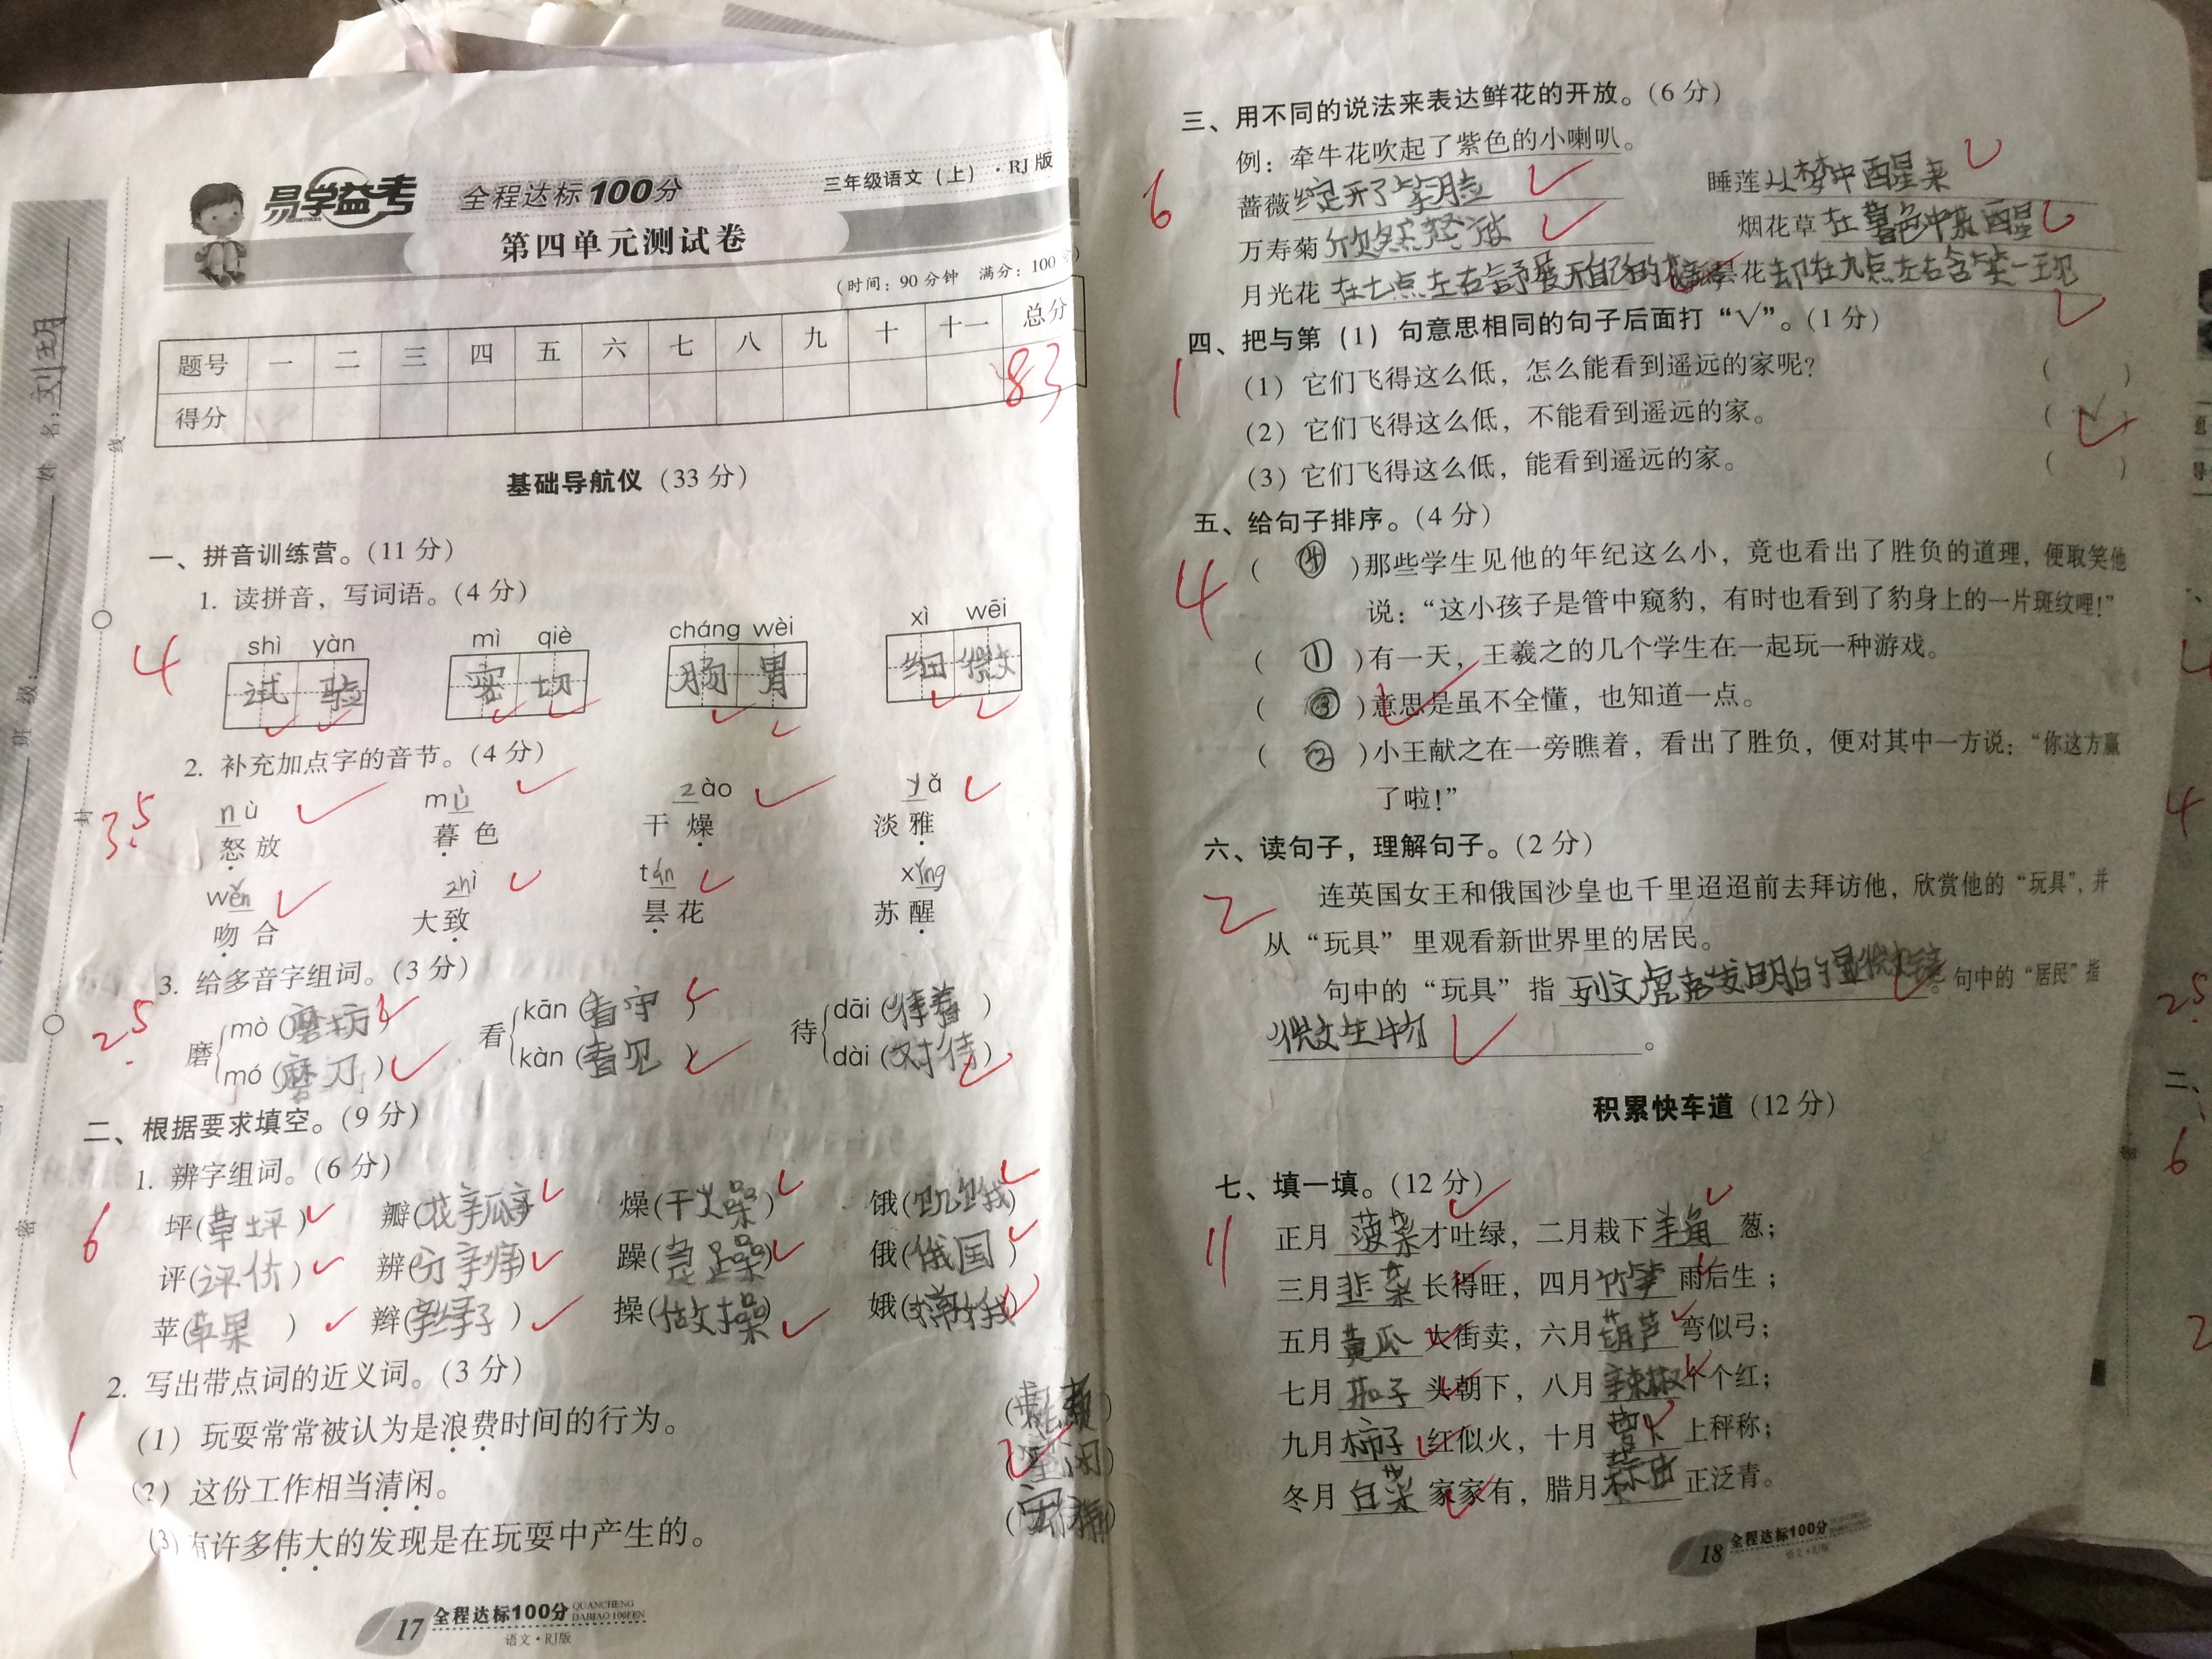 易学益考 全程达标100分 三年级语文（上）·RJ版
第四单元测试卷
（时间：90分钟 满分：100分）
题号 一 二 三 四 五 六 七 八 九 十 十一 总分
得分 83
姓名：
班级：
线
封
密
基础导航仪（33分）
一、拼音训练营。（11分）
1. 读拼音，写词语。（4分）
4
shì yàn mì qiè cháng wèi xì wēi
试验 密切 肠胃 细微
2. 补充加点字的音节。（4分）
3.5
nù mù zào yǎ
怒放 暮色 干燥 淡雅
wěn zhì tán xǐng
吻合 大致 昙花 苏醒
3. 给多音字组词。（3分）
2.5
磨 mò（磨坊） 看 kān（看守） 待 dāi（待着）
mó（磨刀） kàn（看见） dài（对待）
二、根据要求填空。（9分）
1. 辨字组词。（6分）
6
坪（草坪） 瓣（花瓣） 燥（干燥） 饿（饥饿）
评（评价） 辨（分辨） 躁（急躁） 俄（俄国）
苹（苹果） 辫（辫子） 操（做操） 娥（嫦娥）
2. 写出带点词的近义词。（3分）
1
（1）玩耍常常被认为是浪费时间的行为。
（2）这份工作相当清闲。（空闲）
（3）有许多伟大的发现是在玩耍中产生的。
17 全程达标100分 QUANCHENG DABIAO 100FEN
语文·RJ版
三、用不同的说法来表达鲜花的开放。（6分）
例：牵牛花吹起了紫色的小喇叭。
6
蔷薇绽开了笑脸 睡莲从梦中醒来
万寿菊欣然怒放 烟花草在暮色中苏醒
月光花在七点左右舒展开自己的花瓣 昙花却在九点左右含笑一现
四、把与第（1）句意思相同的句子后面打“√”。（1分）
1
（1）它们飞得这么低，怎么能看到遥远的家呢？（ ）
（2）它们飞得这么低，不能看到遥远的家。（√）
（3）它们飞得这么低，能看到遥远的家。（ ）
五、给句子排序。（4分）
4
（④）那些学生见他的年纪这么小，竟也看出了胜负的道理，便取笑他
说：“这小孩子是管中窥豹，有时也看到了豹身上的一片斑纹哩！”
（①）有一天，王羲之的几个学生在一起玩一种游戏。
（③）意思是虽不全懂，也知道一点。
（②）小王献之在一旁瞧着，看出了胜负，便对其中一方说：“你这方赢
了啦！”
六、读句子，理解句子。（2分）
2
连英国女王和俄国沙皇也千里迢迢前去拜访他，欣赏他的“玩具”，并
从“玩具”里观看新世界里的居民。
句中的“玩具”指列文虎克发明的显微镜。句中的“居民”指
微生物。
积累快车道（12分）
七、填一填。（12分）
11
正月菠菜才吐绿，二月栽下羊角葱；
三月韭菜长得旺，四月竹笋雨后生；
五月黄瓜大街卖，六月葫芦弯似弓；
七月茄子头朝下，八月辣椒个个红；
九月柿子红似火，十月萝卜上秤称；
冬月白菜家家有，腊月蒜苗正泛青。
18 全程达标100分
语文·RJ版